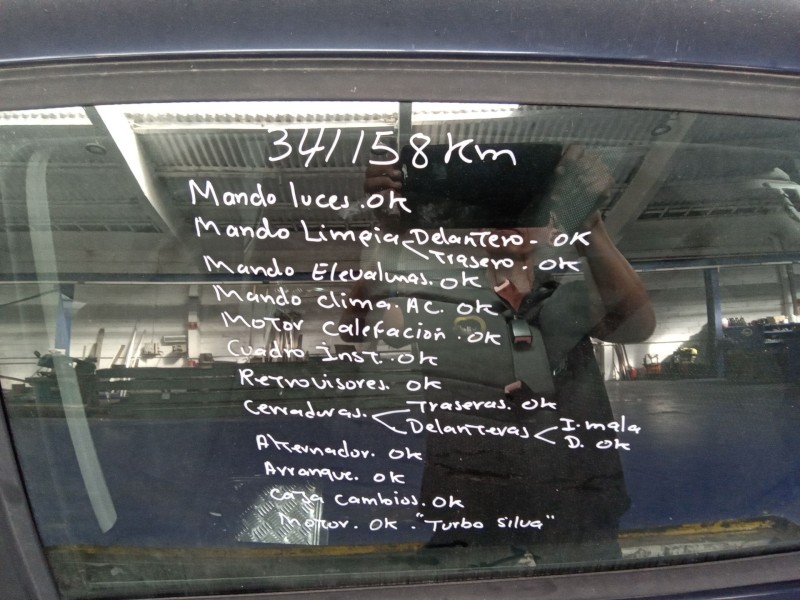 341158 Km
Mando luces. OK
Mando Limpia Delantero. OK
Trasero. OK
Mando Elevalunas. OK
Mando clima. AC. OK
Motor Calefacion. OK
Cuadro Inst. OK
Retrovisores. OK
Cerraduras. Traseras. OK
Delanteras I. mala
D. OK
Alternador. OK
Arranque. OK
Caja Cambios. OK
Motor. OK. "Turbo silva"